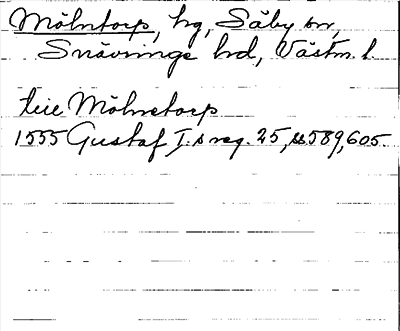 Mölntorp, hg, Säby sn,
Snävringe hd, Västm. l.
till Mölnetorp
1555 Gustaf I:s reg. 25, ss 589, 605.